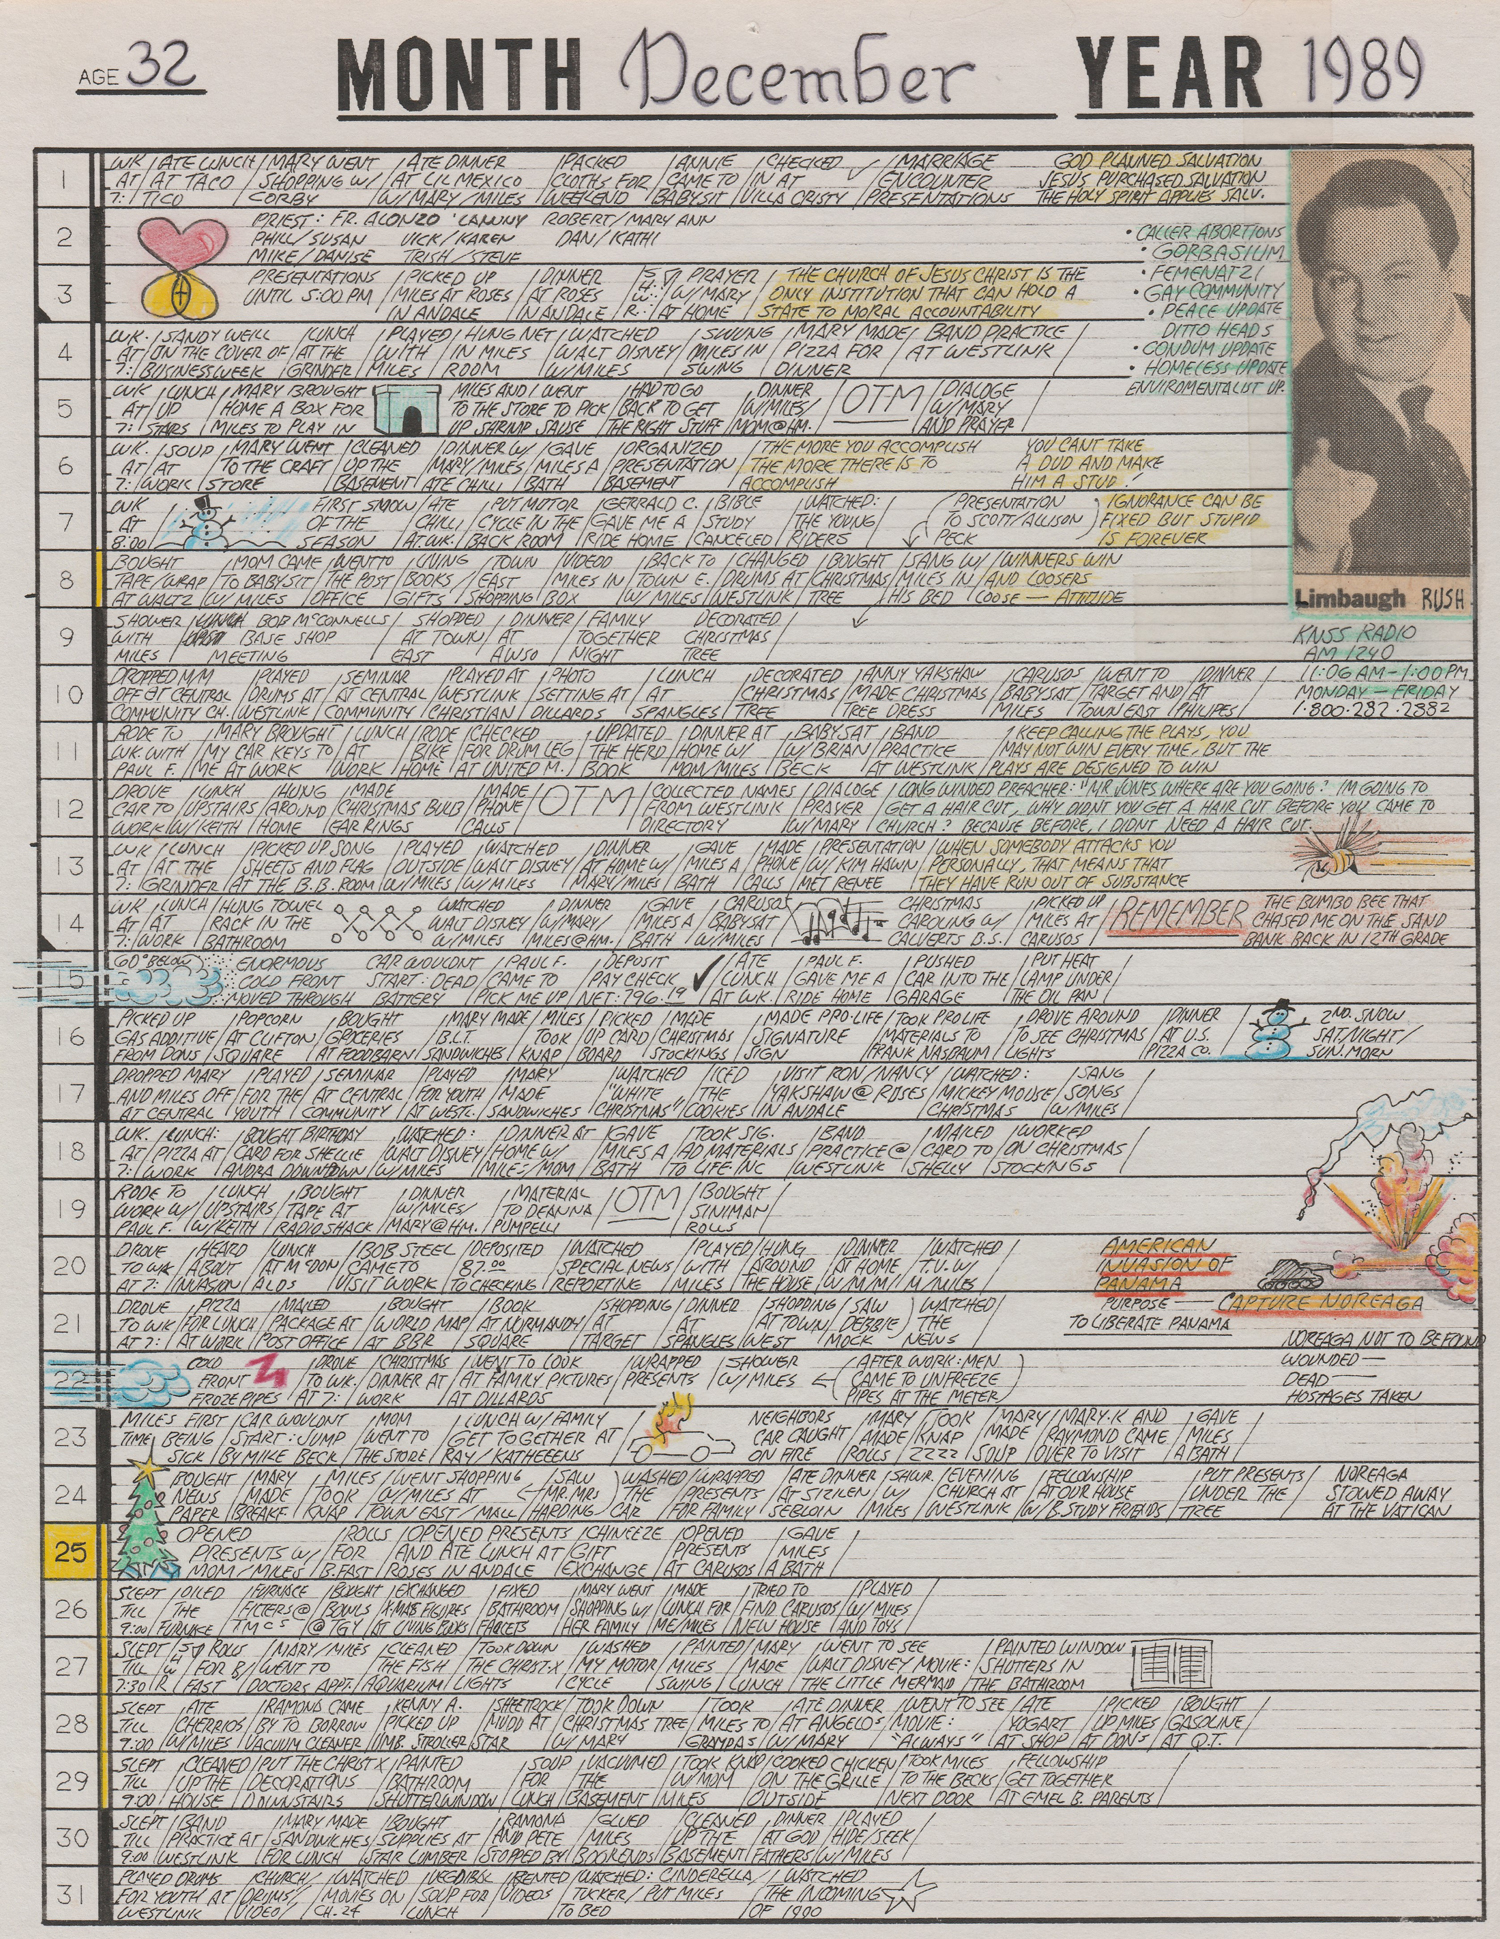 AGE 32 MONTH December YEAR 1989
1
WK / ATE LUNCH / MARY WENT / ATE DINNER / PACKED / ANNIE / CHECKED ✓ / MARRIAGE GOD PLANNED SALVATION
AT / AT TACO / SHOPPING W/ / AT LIL MEXICO / CLOTHS FOR / CAME TO / IN AT / ENCOUNTER JESUS PURCHASED SALVATION
7: / TICO / CORBY / W/MARY/MILES / WEEKEND / BABYSIT / VILLA CRISTY / PRESENTATIONS THE HOLY SPIRIT APPLIES SALV.
2
PRIEST: FR. ALONZO ROBERT/MARY ANN
PHILL/SUSAN VICK/KAREN DAN/KATHI
MIKE/DANISE TRISH/STEVE
• CALLER ABORTIONS
• GORBASIUM
• FEMENATZI
• GAY COMMUNITY
• PEACE UPDATE
DITTO HEADS
• CONDUM UPDATE
• HOMELESS UPDATE
ENVIROMENTALIST UP.
3
PRESENTATIONS / PICKED UP / DINNER / PRAYER / THE CHURCH OF JESUS CHRIST IS THE
UNTIL 5:00 PM / MILES AT ROSES / AT ROSES / W/ MARY / ONLY INSTITUTION THAT CAN HOLD A
IN ANDALE / IN ANDALE / AT HOME / STATE TO MORAL ACCOUNTABILITY
4
WK. / SANDY WEILL / LUNCH / PLAYED / HUNG NET / WATCHED / SWUNG / MARY MADE / BAND PRACTICE
AT / ON THE COVER OF / AT THE / WITH / IN MILES / WALT DISNEY / MILES IN / PIZZA FOR / AT WESTLINK
7: / BUSINESSWEEK / GRINDER / MILES / ROOM / W/MILES / SWING / DINNER
5
WK / LUNCH / MARY BROUGHT MILES AND I WENT / HAD TO GO / DINNER / OTM / DIALOGE
AT / UP / HOME A BOX FOR TO THE STORE TO PICK / BACK TO GET / W/MILES/ / W/MARY
7: / STAIRS / MILES TO PLAY IN UP SHRIMP SAUSE / THE RIGHT STUFF / MOM@HM. / AND PRAYER
6
WK. / SOUP / MARY WENT / CLEANED / DINNER W/ / GAVE / ORGANIZED / THE MORE YOU ACCOMPLISH YOU CANT TAKE
AT / AT / TO THE CRAFT / UP THE / MARY/MILES / MILES A / PRESENTATION / THE MORE THERE IS TO A DUD AND MAKE
7: / WORK / STORE / BASEMENT / ATE CHILLI / BATH / BASEMENT / ACCOMPLISH HIM A STUD!
7
WK FIRST SNOW / ATE / PUT MOTOR / GERRALD C. / BIBLE / WATCHED: / PRESENTATION / IGNORANCE CAN BE
AT OF THE / CHILLI / CYCLE IN THE / GAVE ME A / STUDY / THE YOUNG TO SCOTT/ALLISON / FIXED BUT STUPID
8:00 SEASON / AT WK. / BACK ROOM / RIDE HOME / CANCELED / RIDERS PECK IS FOREVER
8
BOUGHT / MOM CAME / WENT TO / LIVING / TOWN / VIDEOD / BACK TO / CHANGED / BOUGHT / SANG W/ / WINNERS WIN
TAPE/WRAP / TO BABYSIT / THE POST / BOOKS / EAST / MILES IN / TOWN E. / DRUMS AT / CHRISTMAS / MILES IN / AND LOOSERS
AT WALTZ / W/ MILES / OFFICE / GIFTS / SHOPPING / BOX / W/MILES / WESTLINK / TREE / HIS BED / LOOSE — ATTITUDE
Limbaugh RUSH
9
SHOWER / LUNCH / BOB McCONNELLS / SHOPPED / DINNER / FAMILY DECORATED
WITH / BASE SHOP / AT TOWN / AT / TOGETHER CHRISTMAS
MILES / MEETING / EAST / AWSO / NIGHT TREE
KNSS RADIO
AM 1240
11:06 AM – 1:00 PM
MONDAY – FRIDAY
1·800·282·2882
10
DROPPED M/M / PLAYED / SEMINAR / PLAYED AT / PHOTO / LUNCH / DECORATED / ANNY YAKSHAW / CARUSOS / WENT TO / DINNER
OFF @T CENTRAL / DRUMS AT / AT CENTRAL / WESTLINK / SETTING AT / AT / CHRISTMAS / MADE CHRISTMAS / BABYSAT / TARGET AND / AT
COMMUNITY CH. / WESTLINK / COMMUNITY / CHRISTIAN / DILLARDS / SPANGLES / TREE / TREE DRESS / MILES / TOWN EAST / PHILIPES
11
RODE TO / MARY BROUGHT / LUNCH / RODE / CHECKED / UPDATED / DINNER AT / BABYSAT / BAND / KEEP CALLING THE PLAYS, YOU
WK. WITH / MY CAR KEYS TO / AT / BIKE / FOR DRUM LEG / THE HERD / HOME W/ / W/ BRIAN / PRACTICE / MAY NOT WIN EVERY TIME, BUT THE
PAUL F. / ME AT WORK / WORK / HOME / AT UNITED M. / BOOK / MOM/MILES / BECK / AT WESTLINK / PLAYS ARE DESIGNED TO WIN
12
DROVE / LUNCH / HUNG / MADE / MADE / OTM / COLLECTED NAMES / DIALOGE / LONG WINDED PREACHER: "MR JONES WHERE ARE YOU GOING? I'M GOING TO
CAR TO / UPSTAIRS / AROUND / CHRISTMAS BULB / PHONE / FROM WESTLINK / PRAYER / GET A HAIR CUT, WHY DIDN'T YOU GET A HAIR CUT BEFORE YOU CAME TO
WORK / W/KEITH / HOME / EAR RINGS / CALLS / DIRECTORY / W/MARY / CHURCH? BECAUSE BEFORE, I DIDNT NEED A HAIR CUT.
13
WK / LUNCH / PICKED UP SONG / PLAYED / WATCHED / DINNER / GAVE / MADE / PRESENTATION / WHEN SOMEBODY ATTACKS YOU
AT / AT THE / SHEETS AND FLAG / OUTSIDE / WALT DISNEY / AT HOME W/ / MILES A / PHONE / W/ KIM HAWN / PERSONALLY, THAT MEANS THAT
7: / GRINDER / AT THE B.B. ROOM / W/MILES / W/MILES / MARY/MILES / BATH / CALLS / MET RENEE / THEY HAVE RUN OUT OF SUBSTANCE
14
WK / LUNCH / HUNG TOWEL WATCHED / DINNER / GAVE / CARUSOS CHRISTMAS / PICKED UP / REMEMBER THE BUMBO BEE THAT
AT / AT / RACK IN THE WALT DISNEY / W/MARY/ / MILES A / BABYSAT CAROLING W/ / MILES AT CHASED ME ON THE SAND
7: / WORK / BATHROOM W/MILES / MILES@HM. / BATH / W/MILES CALVERTS B.S. / CARUSOS BANK BACK IN 12TH GRADE
15
60° BELOW ENORMOUS CAR WOULDNT / PAUL F. / DEPOSIT / ATE / PAUL F. / PUSHED / PUT HEAT
COLD FRONT START: DEAD / CAME TO / PAY CHECK ✓ / LUNCH / GAVE ME A / CAR INTO THE / LAMP UNDER
MOVED THROUGH BATTERY / PICK ME UP / NET: 796.19 / AT WK. / RIDE HOME / GARAGE / THE OIL PAN
16
PICKED UP / POPCORN / BOUGHT / MARY MADE / MILES / PICKED / MADE / MADE PRO-LIFE / TOOK PRO LIFE / DROVE AROUND / DINNER 2ND. SNOW
GAS ADDITIVE / AT CLIFTON / GROCERIES / B.L.T. / TOOK / UP CARD / CHRISTMAS / SIGNATURE / MATERIALS TO / TO SEE CHRISTMAS / AT U.S. SAT. NIGHT/
FROM DONS / SQUARE / AT FOODBARN / SANDWICHES / KNAP / BOARD / STOCKINGS / SIGN / FRANK NASBAUM / LIGHTS / PIZZA CO. SUN. MORN
17
DROPPED MARY / PLAYED / SEMINAR / PLAYED / MARY / WATCHED / ICED / VISIT RON/NANCY / WATCHED: / SANG
AND MILES OFF / FOR THE / AT CENTRAL / FOR YOUTH / MADE / "WHITE / THE / YAKSHAW @ ROSES / MICKEY MOUSE / SONGS
AT CENTRAL / YOUTH / COMMUNITY / AT WESTL. / SANDWICHES / CHRISTMAS" / COOKIES / IN ANDALE / CHRISTMAS / W/MILES
18
WK. / LUNCH: / BOUGHT BIRTHDAY / WATCHED: / DINNER AT / GAVE / TOOK SIG. / BAND / MAILED / WORKED
AT / PIZZA AT / CARD FOR SHELLIE / WALT DISNEY / HOME W/ / MILES A / AD MATERIALS / PRACTICE @ / CARD TO / ON CHRISTMAS
7: / WORK / ANDRA DOWNTOWN / W/MILES / MILES/MOM / BATH / TO LIFE INC / WESTLINK / SHELLY / STOCKINGS
19
RODE TO / LUNCH / BOUGHT / DINNER / MATERIAL / OTM / BOUGHT
WORK W/ / UPSTAIRS / TAPE AT / W/MILES/ / TO DEANNA / SINIMAN
PAUL F. / W/KEITH / RADIOSHACK / MARY@HM. / PUMPELLI / ROLLS
20
DROVE / HEARD / LUNCH / BOB STEEL / DEPOSITED / WATCHED / PLAYED / HUNG / DINNER / WATCHED AMERICAN
TO WK / ABOUT / AT M'DON / CAME TO / 87.00 / SPECIAL NEWS / WITH / AROUND / AT HOME / T.V. W/ INVASION OF
AT 7: / INVASION / ALDS / VISIT WORK / TO CHECKING / REPORTING / MILES / THE HOUSE / W/M/M / M/MILES PANAMA
21
DROVE / PIZZA / MAILED / BOUGHT / BOOK / SHOPPING / DINNER / SHOPPING / SAW / WATCHED PURPOSE — CAPTURE NOREAGA
TO WK / FOR LUNCH / PACKAGE AT / WORLD MAP / AT NORMANDY / AT / AT / AT TOWN / DEBBIE / THE TO LIBERATE PANAMA
AT 7: / AT WORK / POST OFFICE / AT BBR / SQUARE / TARGET / SPANGLES / WEST / MOCK / NEWS NOREAGA NOT TO BE FOUND
22
COLD / DROVE / CHRISTMAS / WENT TO LOOK / WRAPPED / SHOWER / AFTER WORK: MEN WOUNDED —
FRONT / TO WK. / DINNER AT / AT FAMILY PICTURES / PRESENTS / W/MILES ← CAME TO UNFREEZE DEAD —
FROZE PIPES / AT 7: / WORK / AT DILLARDS PIPES AT THE METER HOSTAGES TAKEN
23
MILES FIRST / CAR WOULDNT / MOM / LUNCH W/ FAMILY NEIGHBORS / MARY / TOOK / MARY / MARY·K AND / GAVE
TIME BEING / START: JUMP / WENT TO / GET TOGETHER AT CAR CAUGHT / MADE / KNAP / MADE / RAYMOND CAME / MILES
SICK / BY MIKE BECK / THE STORE / RAY/KATHEEENS ON FIRE / ROLLS / ZZZZ / SOUP / OVER TO VISIT / A BATH
24
BOUGHT / MARY / MILES / WENT SHOPPING / SAW / WASHED / WRAPPED / ATE DINNER / SHWR / EVENING / FELLOWSHIP / PUT PRESENTS / NOREAGA
NEWS / MADE / TOOK / W/MILES AT ← MR. MRS / THE / PRESENTS / AT SIZILEN / W/ / CHURCH AT / AT OUR HOUSE / UNDER THE / STOWED AWAY
PAPER / BREAKF. / KNAP / TOWN EAST/MALL / HARDING / CAR / FOR FAMILY / SERLOIN / MILES / WESTLINK / W/ B.STUDY FRIENDS / TREE / AT THE VATICAN
25
OPENED / ROLLS / OPENED PRESENTS / CHINEEZE / OPENED / GAVE
PRESENTS W/ / FOR / AND ATE LUNCH AT / GIFT / PRESENTS / MILES
MOM/MILES / B.FAST / ROSES IN ANDALE / EXCHANGE / AT CARUSOS / A BATH
26
SLEPT / OILED / FURNACE / BOUGHT / EXCHANGED / FIXED / MARY WENT / MADE / TRIED TO / PLAYED
TILL / THE / FILTERS @ / BOWLS / X-MAS FIGURES / BATHROOM / SHOPPING W/ / LUNCH FOR / FIND CARUSOS / W/ MILES
9:00 / FURNACE / TMCS / @ TGY / AT LIVING BOOKS / FAUCETS / HER FAMILY / ME/MILES / NEW HOUSE / AND TOYS
27
SLEPT / ROLLS / MARY/MILES / CLEANED / TOOK DOWN / WASHED / PAINTED / MARY / WENT TO SEE / PAINTED WINDOW
TILL / FOR B/ / WENT TO / THE FISH / THE CHRIST-X / MY MOTOR / MILES / MADE / WALT DISNEY MOVIE: / SHUTTERS IN
7:30 / FAST / DOCTORS APPT. / AQUARIUM / LIGHTS / CYCLE / SWING / LUNCH / THE LITTLE MERMAID / THE BATHROOM
28
SLEPT / ATE / RAMOND CAME / KENNY A. / SHEETROCK / TOOK DOWN / TOOK / ATE DINNER / WENT TO SEE / ATE / PICKED / BOUGHT
TILL / CHERRIOS / BY TO BORROW / PICKED UP / MUDD AT / CHRISTMAS TREE / MILES TO / AT ANGELOS / MOVIE: / YOGART / UP MILES / GASOLINE
9:00 / W/MILES / VACUUM CLEANER / UMB. STROLLER / STAR / W/ MARY / GRAMPAS / W/ MARY / "ALWAYS" / AT SHOP / AT DONS / AT Q.T.
29
SLEPT / CLEANED / PUT THE CHRIST X / PAINTED / SOUP / VACUUMED / TOOK KNAP / COOKED CHICKEN / TOOK MILES / FELLOWSHIP
TILL / UP THE / DECORATIONS / BATHROOM / FOR / THE / W/MOM / ON THE GRILLE / TO THE BECKS / GET TOGETHER
9:00 / HOUSE / DOWNSTAIRS / SHUTTERWINDOW / LUNCH / BASEMENT / MILES / OUTSIDE / NEXT DOOR / AT EMEL B. PARENTS
30
SLEPT / BAND / MARY MADE / BOUGHT / RAMOND / GLUED / CLEANED / DINNER / PLAYED
TILL / PRACTICE AT / SANDWICHES / SUPPLIES AT / AND PETE / MILES / UP THE / AT GOD / HIDE/SEEK
9:00 / WESTLINK / FOR LUNCH / STAR LUMBER / STOPPED BY / BOOKENDS / BASEMENT / FATHERS / W/MILES
31
PLAYED DRUMS / CHURCH/ / WATCHED / VEGDIBLE / RENTED / WATCHED: CINDERELLA / WATCHED
FOR YOUTH AT / DRUMS/ / MOVIES ON / SOUP FOR / VIDEOS / TUCKER / PUT MILES / THE INCOMING
WESTLINK / VIDEO/ / CH. 24 / LUNCH / TO BED / OF 1990